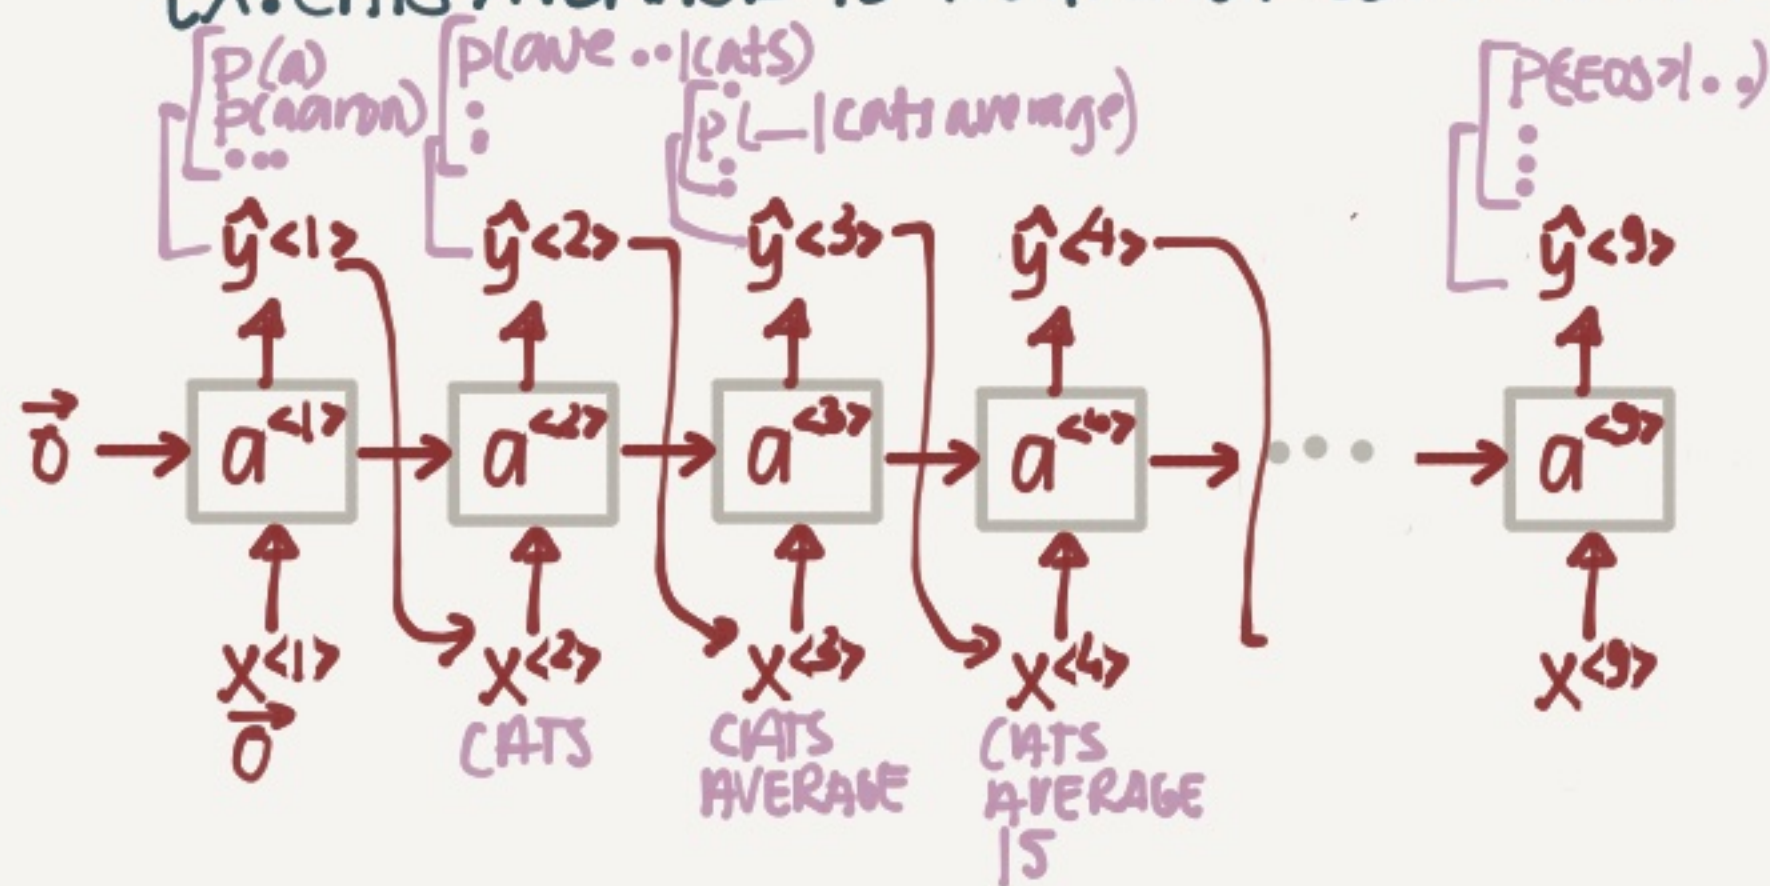 P(a)
P(aaron)
...
P(ave ..|cats)
P(_|cats average)
P(<EOS>|..)
ŷ<1> ŷ<2> ŷ<3> ŷ<4> ŷ<9>
0 a<1> a<2> a<3> a<4> ... a<9>
x<1> x<2> x<3> x<4> x<9>
0
CATS
CATS
AVERAGE
CATS
AVERAGE
15